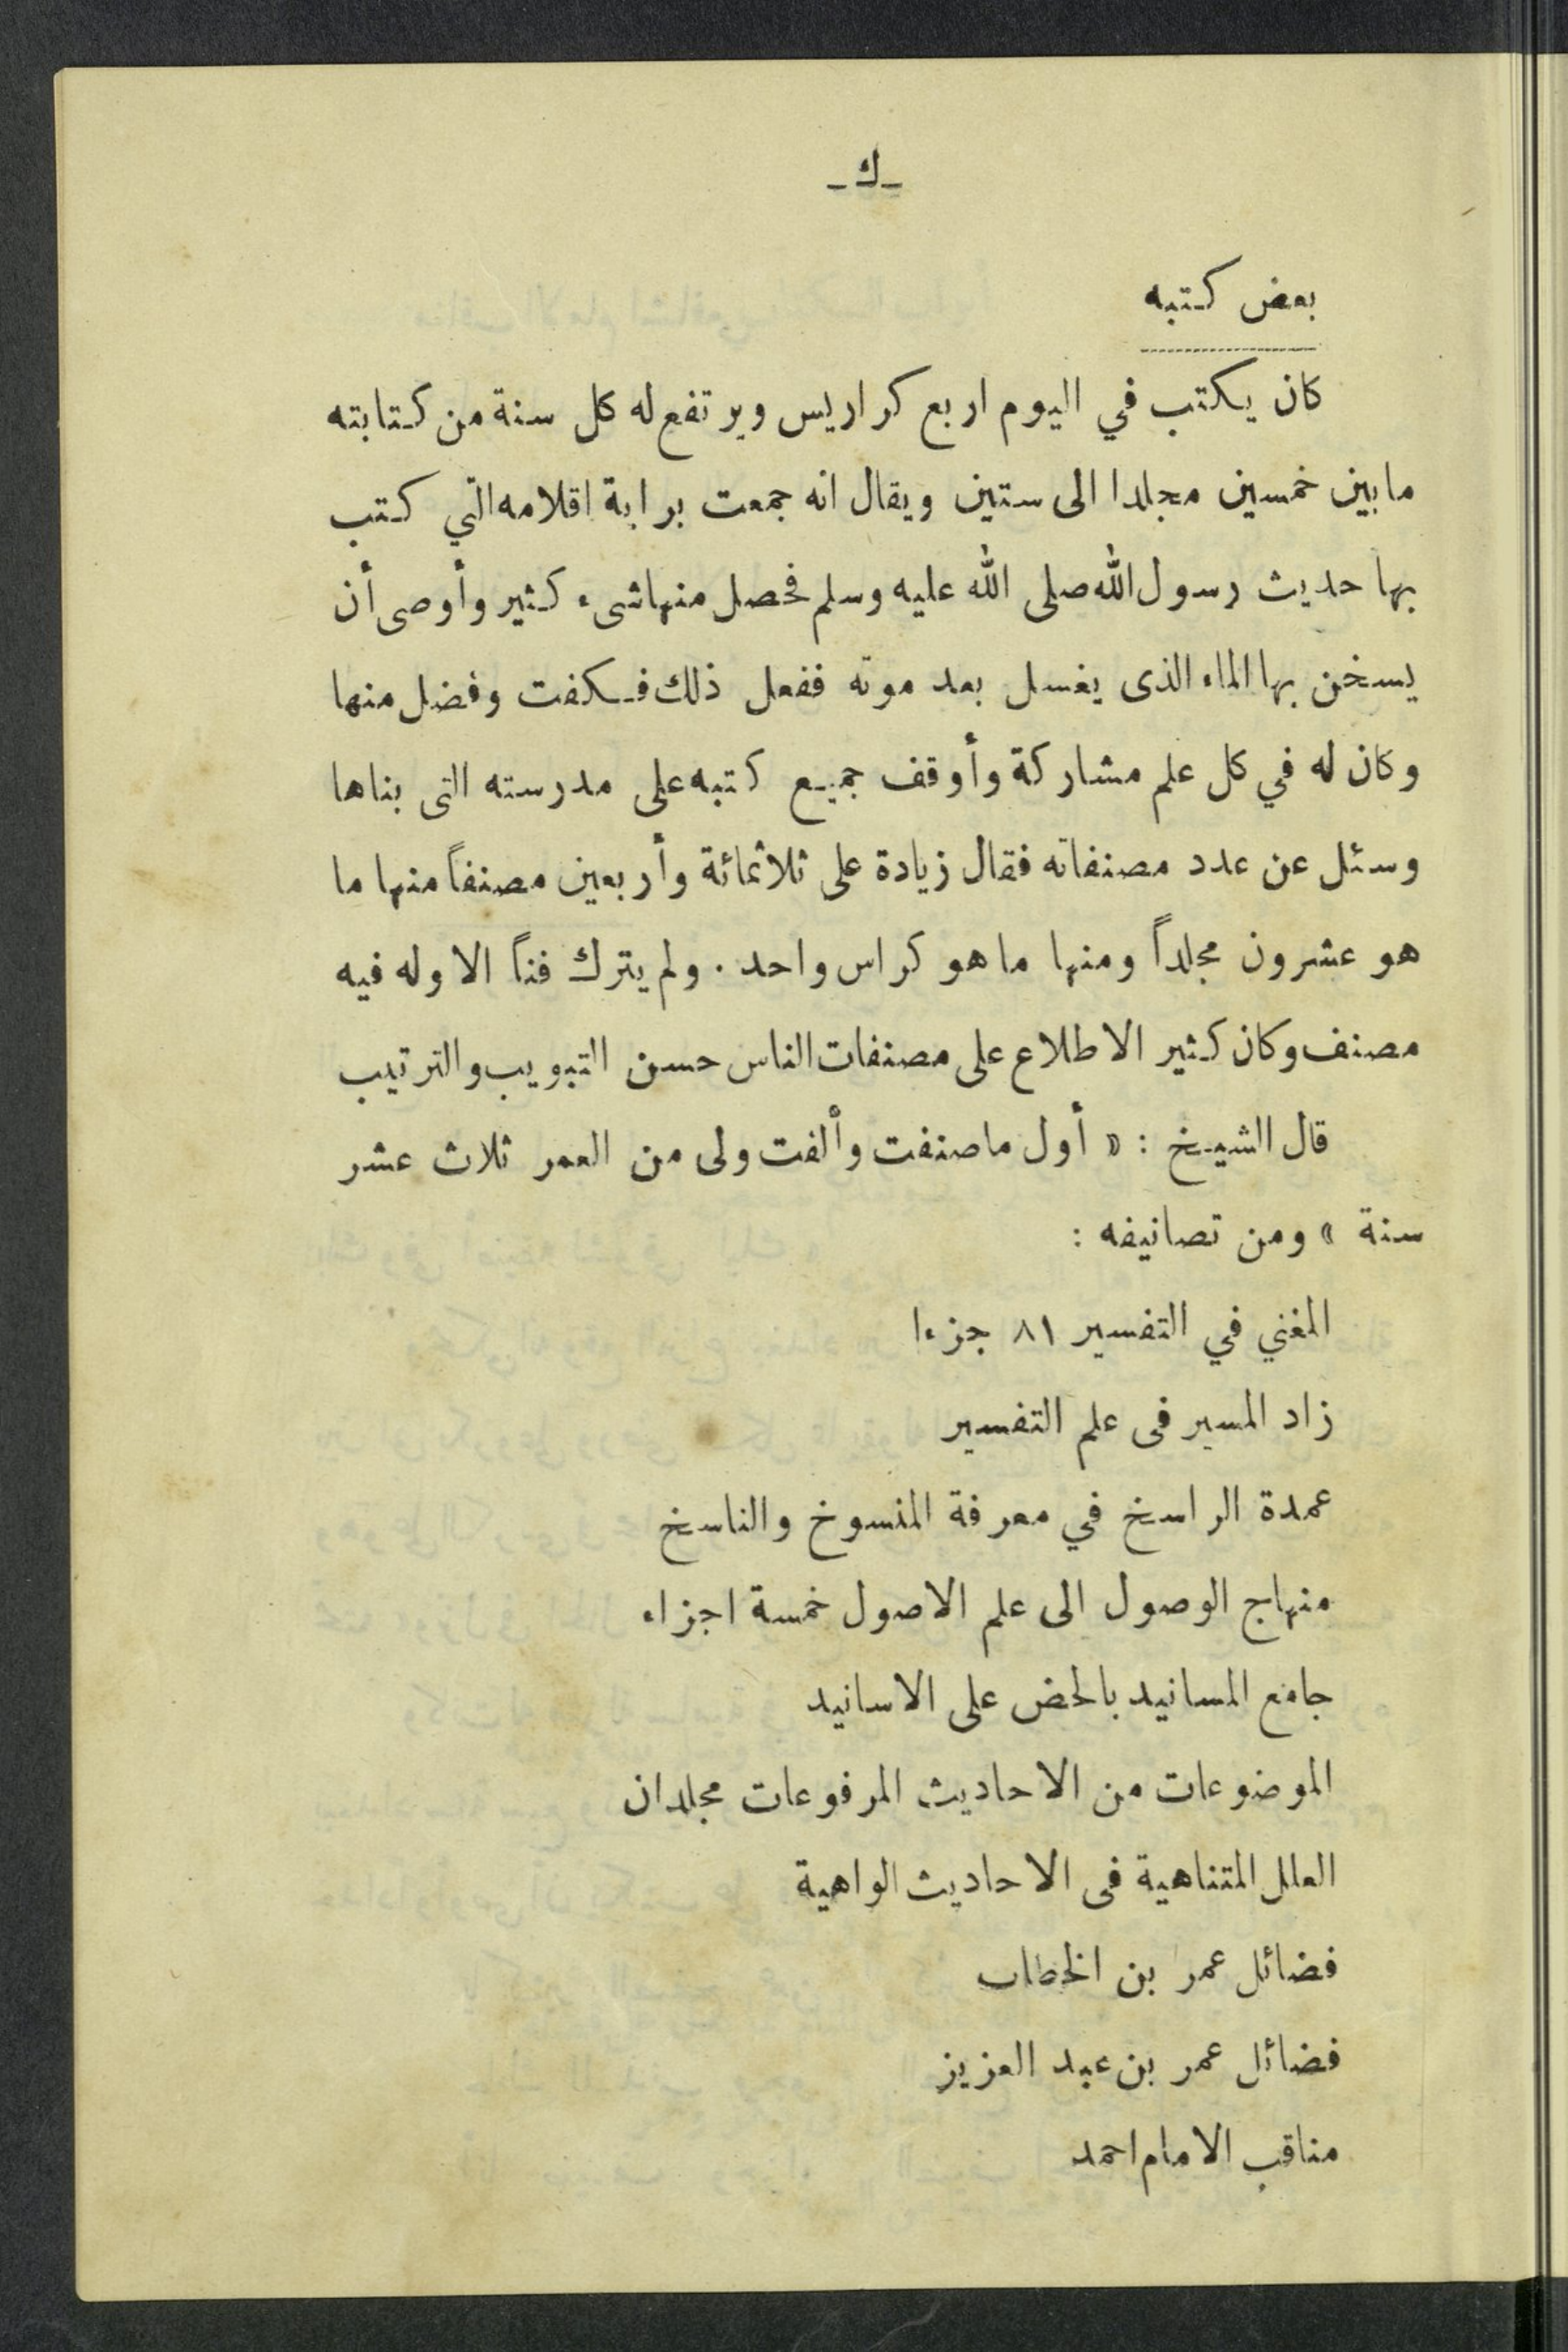 -ك-
بعض كتبه
كان يكتب في اليوم اربع كراريس ويرتفع له كل سنة من كتابته
مابين خمسين مجلدا الى ستين ويقال انه جمعت براية اقلامه التي كتب
بها حديث رسول الله صلى الله عليه وسلم فحصل منها شىء كثير وأوصى أن
يسخن بها الماء الذى يغسل بعد موته ففعل ذلك فكفت وفضل منها
وكان له في كل علم مشاركة وأوقف جميع كتبه على مدرسته التى بناها
وسئل عن عدد مصنفاته فقال زيادة على ثلاثمائة وأربعين مصنفاً منها ما
هو عشرون مجلداً ومنها ما هو كراس واحد . ولم يترك فناً الا وله فيه
مصنف وكان كثير الاطلاع على مصنفات الناس حسن التبويب والترتيب
قال الشيخ : « أول ما صنفت وألفت ولى من العمر ثلاث عشر
سنة » ومن تصانيفه :
المغني في التفسير ٨١ جزءا
زاد المسير فى علم التفسير
عمدة الراسخ في معرفة المنسوخ والناسخ
منهاج الوصول الى علم الاصول خمسة اجزاء
جامع المسانيد بالحض على الاسانيد
الموضوعات من الاحاديث المرفوعات مجلدان
العلل المتناهية فى الاحاديث الواهية
فضائل عمر بن الخطاب
فضائل عمر بن عبد العزيز
مناقب الامام احمد